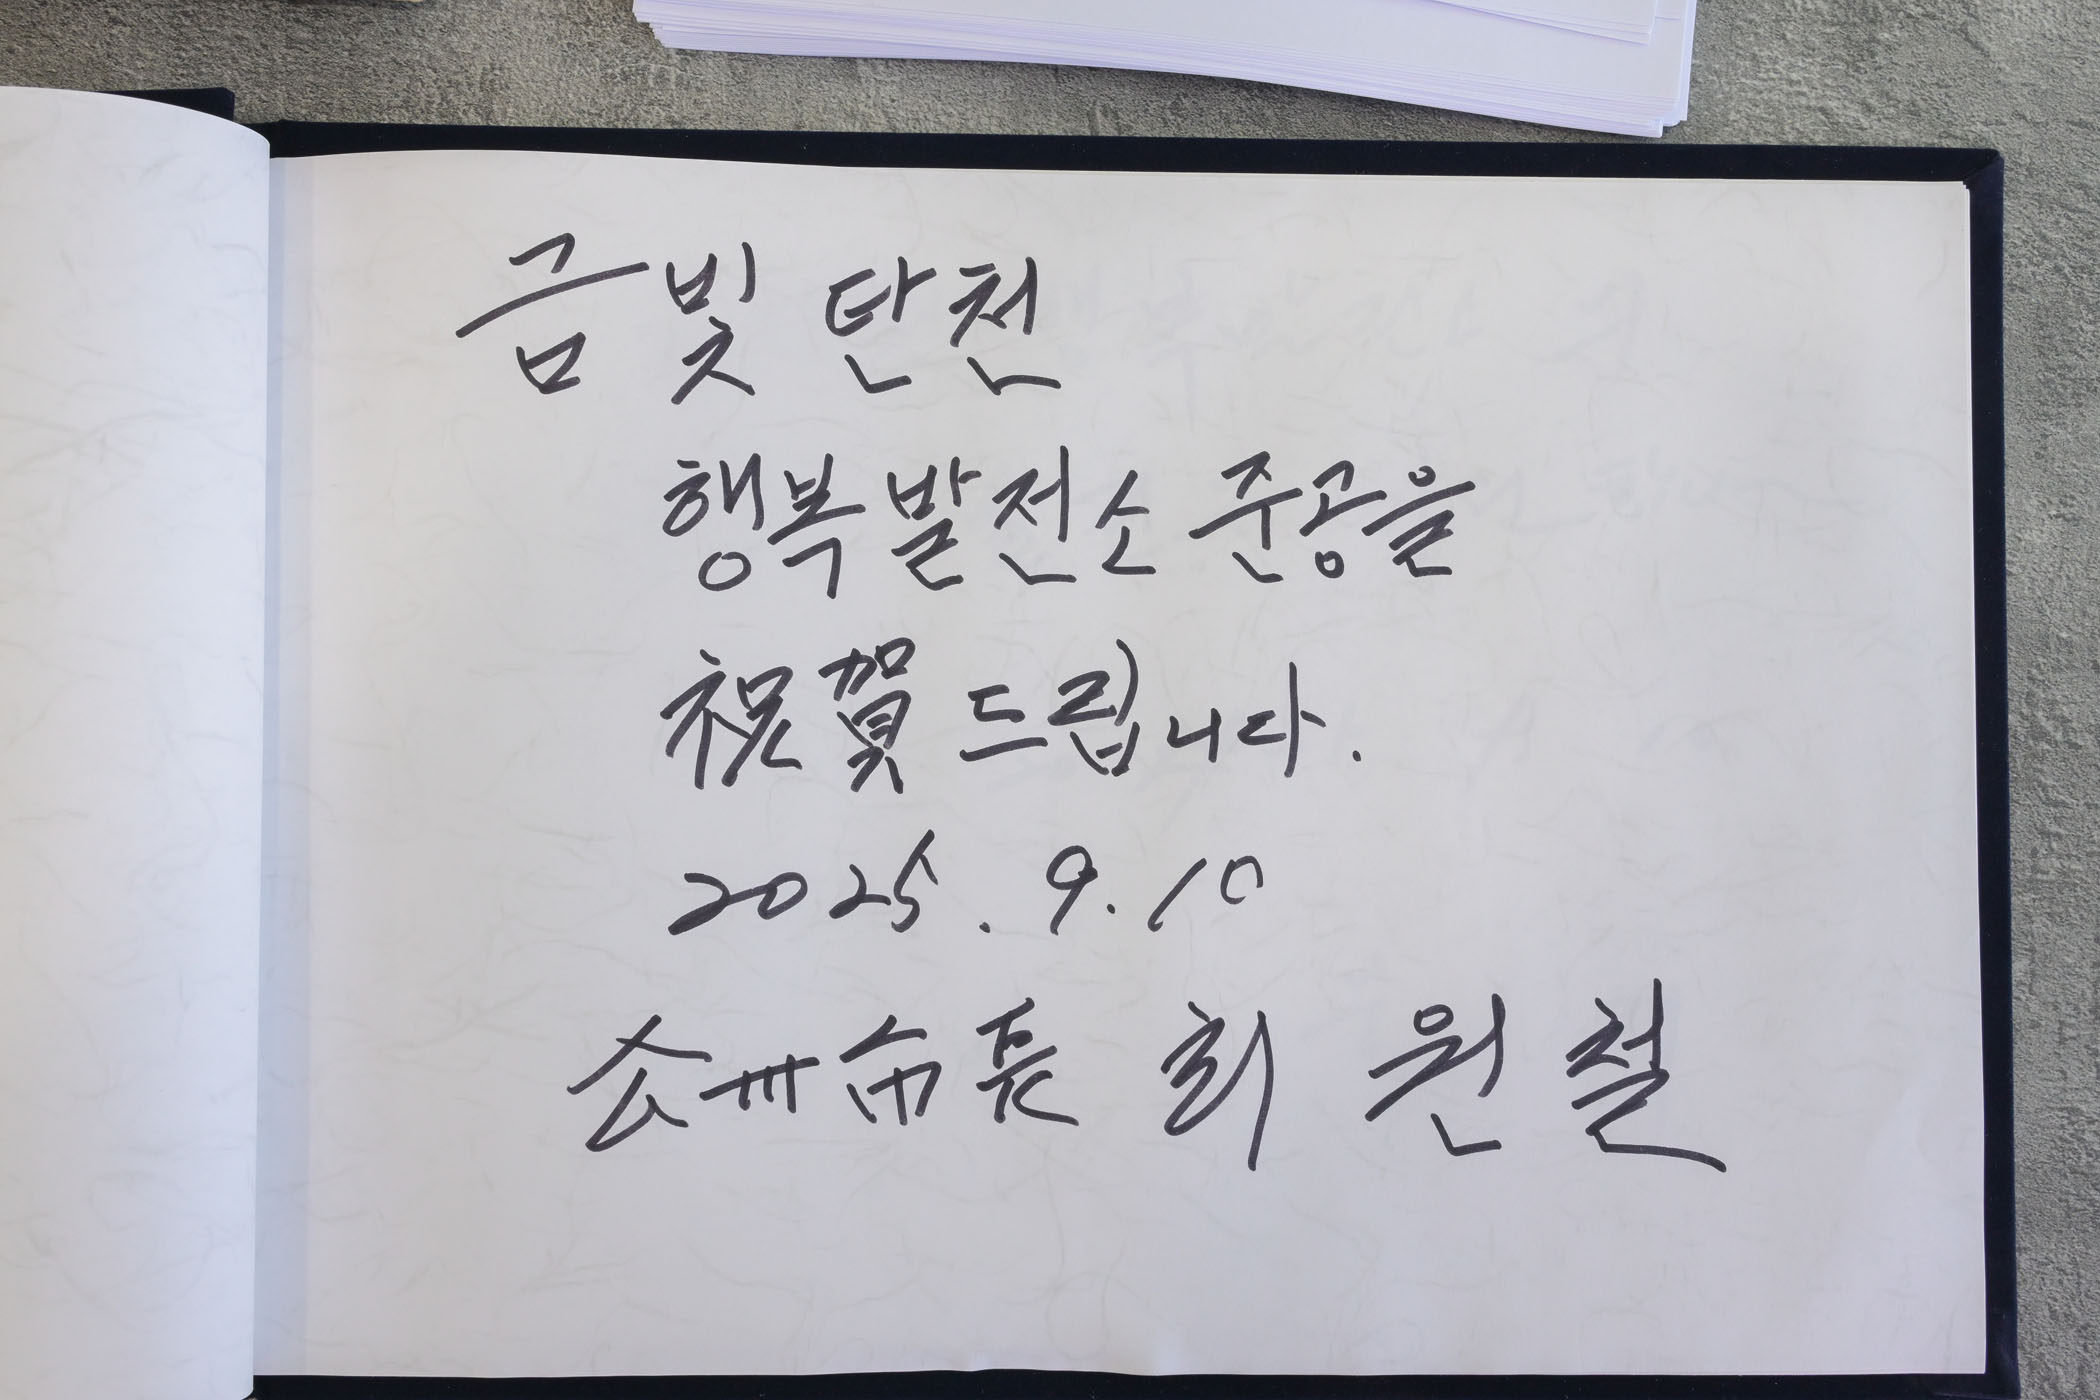 금빛 탄천
행복발전소 준공을
祝賀 드립니다.
2025. 9. 10
公州市長 최 원 철